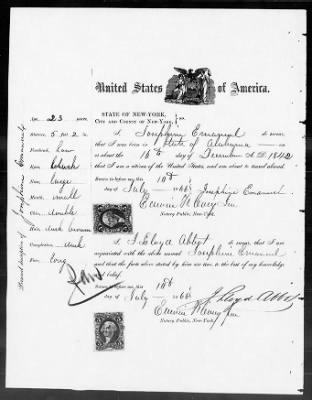 United States of America.
STATE OF NEW-YORK,
CITY AND COUNTY OF NEW-YORK, } ss.
I, Josephine Emanuel do swear
that I was born in State of Alabama on
or about the 16th day of December A.D. 1842
that I am a citizen of the United States, and am about to travel abroad.
Sworn to before me this 18th
day of July 186 Josephine Emanuel
Edwin
Notary Public, New York.
I, J. Lloyd Abbot do swear that I am
acquainted with the above named Josephine Emanuel
and that the facts above stated by him are true to the best of my knowledge
and belief.
Sworn to before me this 18th
day of July 186 J. Lloyd Abbot
Edwin
Notary Public, New York.
Personal description of Josephine Emanuel
AGE, 23 years
STATURE, 5 feet 2 in.
FOREHEAD, Low
EYES,
NOSE, large
MOUTH, small
CHIN, double
HAIR, dark brown
COMPLEXION, dark
FACE, long